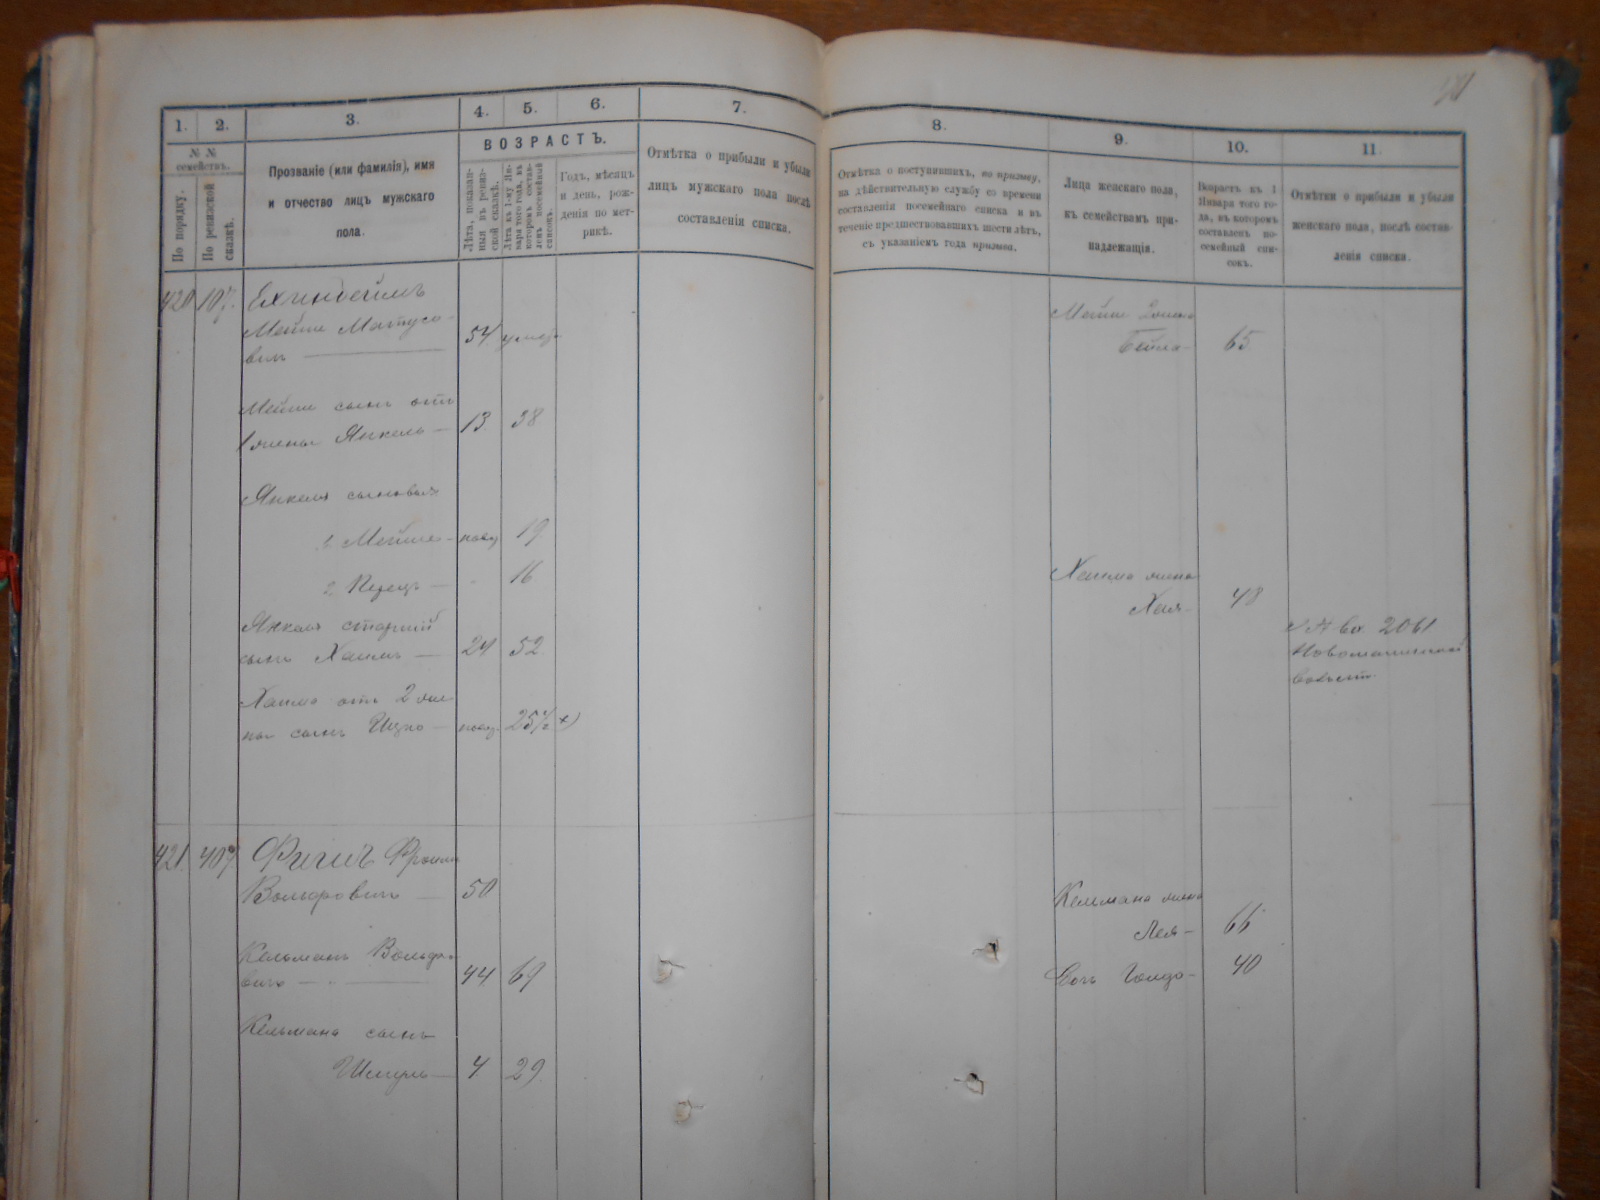 1. 2. 3. 4. 5. 6. 7.
№ №
семействъ.
По порядку.
По ревизской
сказкѣ.
Прозваніе (или фамилія), имя
и отчество лицъ мужскаго
пола.
ВОЗРАСТЪ.
Лѣта, показан-
ныя въ ревиз-
ской сказкѣ.
Лѣта къ 1-му Ян-
варя того года, въ
которомъ состав-
ленъ посемейный
списокъ.
Годъ, мѣсяцъ
и день, рож-
денія по мет-
рикѣ.
Отмѣтка о прибыли и убыли
лицъ мужскаго пола послѣ
составленія списка.
420 107.
Мейше Матусо-
вичъ 54
Мейше сынъ отъ
1 жены Янкель 13. 38
Янкеля сыновья
1. Мейше 19
2 16
Янкеля старшій
сынъ Хаимъ 24 52
Хаима отъ 2 же
ны сынъ Ицко 25
421. 407 Фишъ Фроим
Вольфовичъ 50
Кельманъ Вольфо-
вичъ 44 69
Кельмана сынъ
Шмуль 4. 29
8. 9. 10. 11.
Отмѣтка о поступившихъ, по призыву,
на дѣйствительную службу со времени
составленія посемейнаго списка и въ
теченіе предшествовавшихъ шести лѣтъ,
съ указаніемъ года призыва.
Лица женскаго пола,
къ семействамъ при-
надлежащія.
Возрастъ къ 1
Января того го-
да, въ которомъ
составленъ по-
семейный спи-
сокъ.
Отмѣтки о прибыли и убыли
женскаго пола, послѣ состав-
ленія списка.
Мейше 2 жена
Бейла 65
Хаима жена
Хая 48
2061
Кельмана жена
Лея 66
Дочь Голда 40